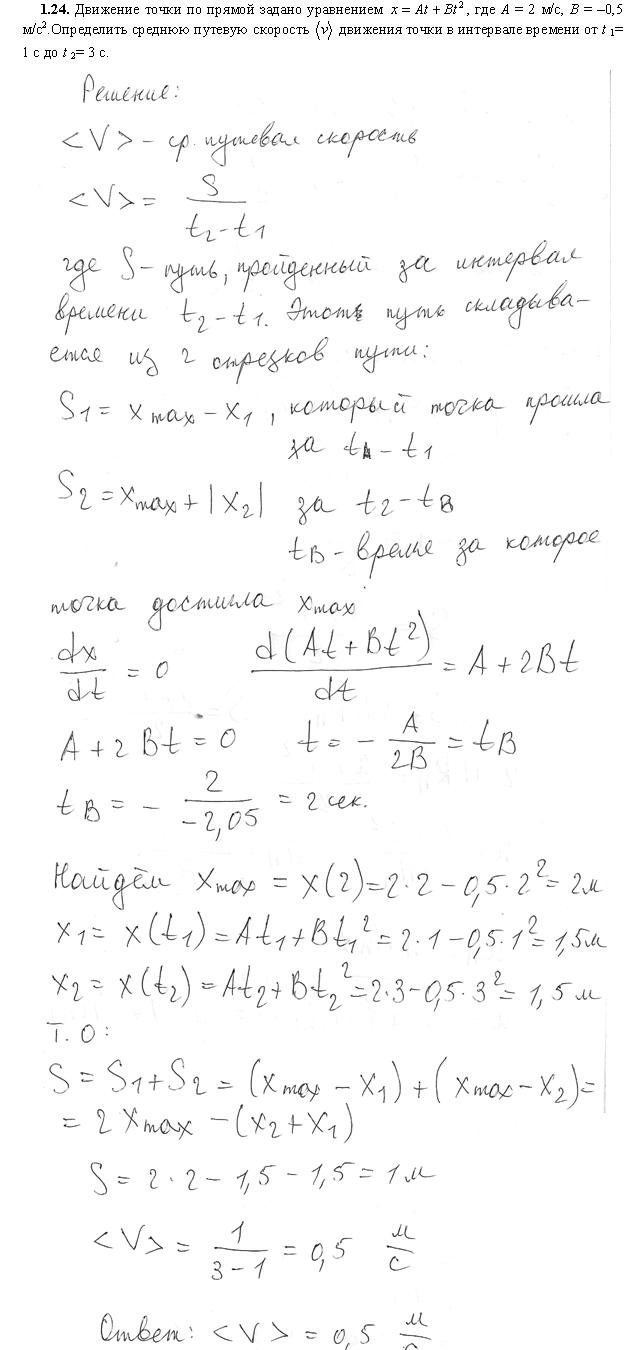 1.24. Движение точки по прямой задано уравнением x = At + Bt², где A = 2 м/с, B = –0,5
м/с².Определить среднюю путевую скорость ⟨v⟩ движения точки в интервале времени от t ₁=
1 с до t ₂= 3 с.
Решение:
<V> – ср. путевая скорость
<V> = S / (t₂ – t₁)
где S – путь, пройденный за интервал
времени t₂ – t₁. Этот путь складыва-
ется из 2 отрезков пути:
S₁ = xmax – x₁, который точка прошла
за t – t₁
S₂ = xmax + |x₂| за t₂ – tB
tB – время за которое
точка достигла xmax
dx/dt = 0 d(At + Bt²)/dt = A + 2Bt
A + 2Bt = 0 t = – A/2B = tB
tB = – 2/–2,05 = 2 сек.
Найдём xmax = x(2) = 2·2 – 0,5·2² = 2м
x₁ = x(t₁) = At₁ + Bt₁² = 2·1 – 0,5·1² = 1,5м
x₂ = x(t₂) = At₂ + Bt₂² = 2·3 – 0,5·3² = 1,5 м
Т.О:
S = S₁ + S₂ = (xmax – x₁) + (xmax – x₂) =
= 2xmax – (x₂ + x₁)
S = 2·2 – 1,5 – 1,5 = 1м
<V> = 1/(3 – 1) = 0,5 м/с
Ответ: <V> = 0,5 м/с